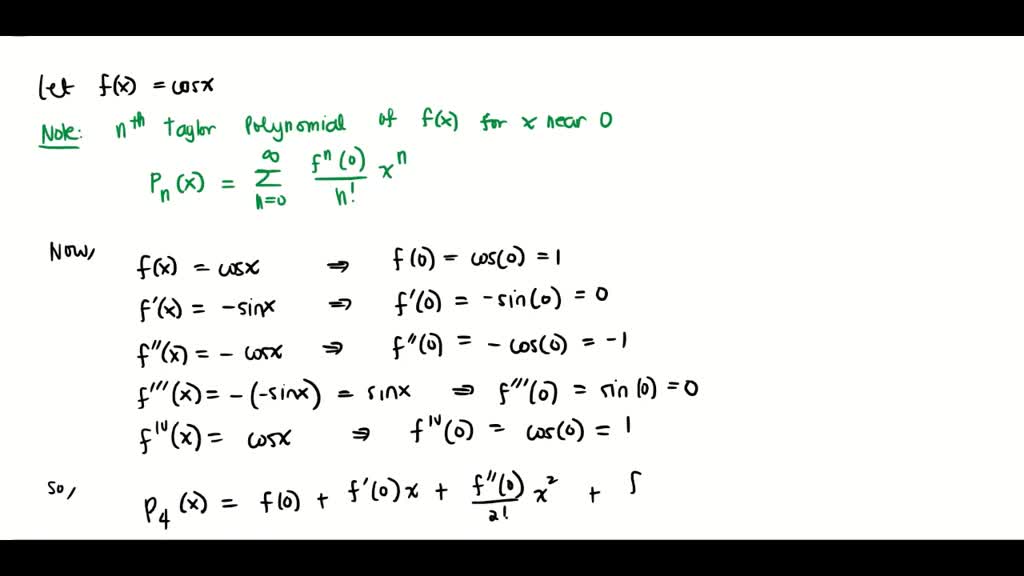 Let f(x) = cosx
Note: nth Taylor Polynomial of f(x) for x near 0
Pₙ(x) = ∞ Σ n=0 fⁿ(0)/n! xⁿ
Now,
f(x) = cosx ⇒ f(0) = cos(0) = 1
f'(x) = -sinx ⇒ f'(0) = -sin(0) = 0
f''(x) = - cosx ⇒ f''(0) = - cos(0) = -1
f'''(x) = -(-sinx) = sinx ⇒ f'''(0) = sin(0) = 0
f^IV(x) = cosx ⇒ f^IV(0) = cos(0) = 1
So, P₄(x) = f(0) + f'(0)x + f''(0)/2! x² + f